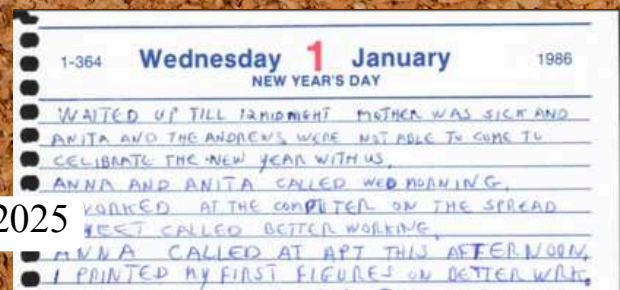 1-364 Wednesday 1 January 1986
NEW YEAR'S DAY
WAITED UP TILL 12 MIDNIGHT MOTHER WAS SICK AND
ANITA AND THE ANDREWS WERE NOT ABLE TO COME TO
CELIBRATE THE NEW YEAR WITH US.
ANNA AND ANITA CALLED WED MORNING.
WORKED AT THE COMPUTER ON THE SPREAD
2025
SHEET CALLED BETTER WORKING.
ANNA CALLED AT APT THIS AFTERNOON.
I PRINTED MY FIRST FIGURES ON BETTER WRK.